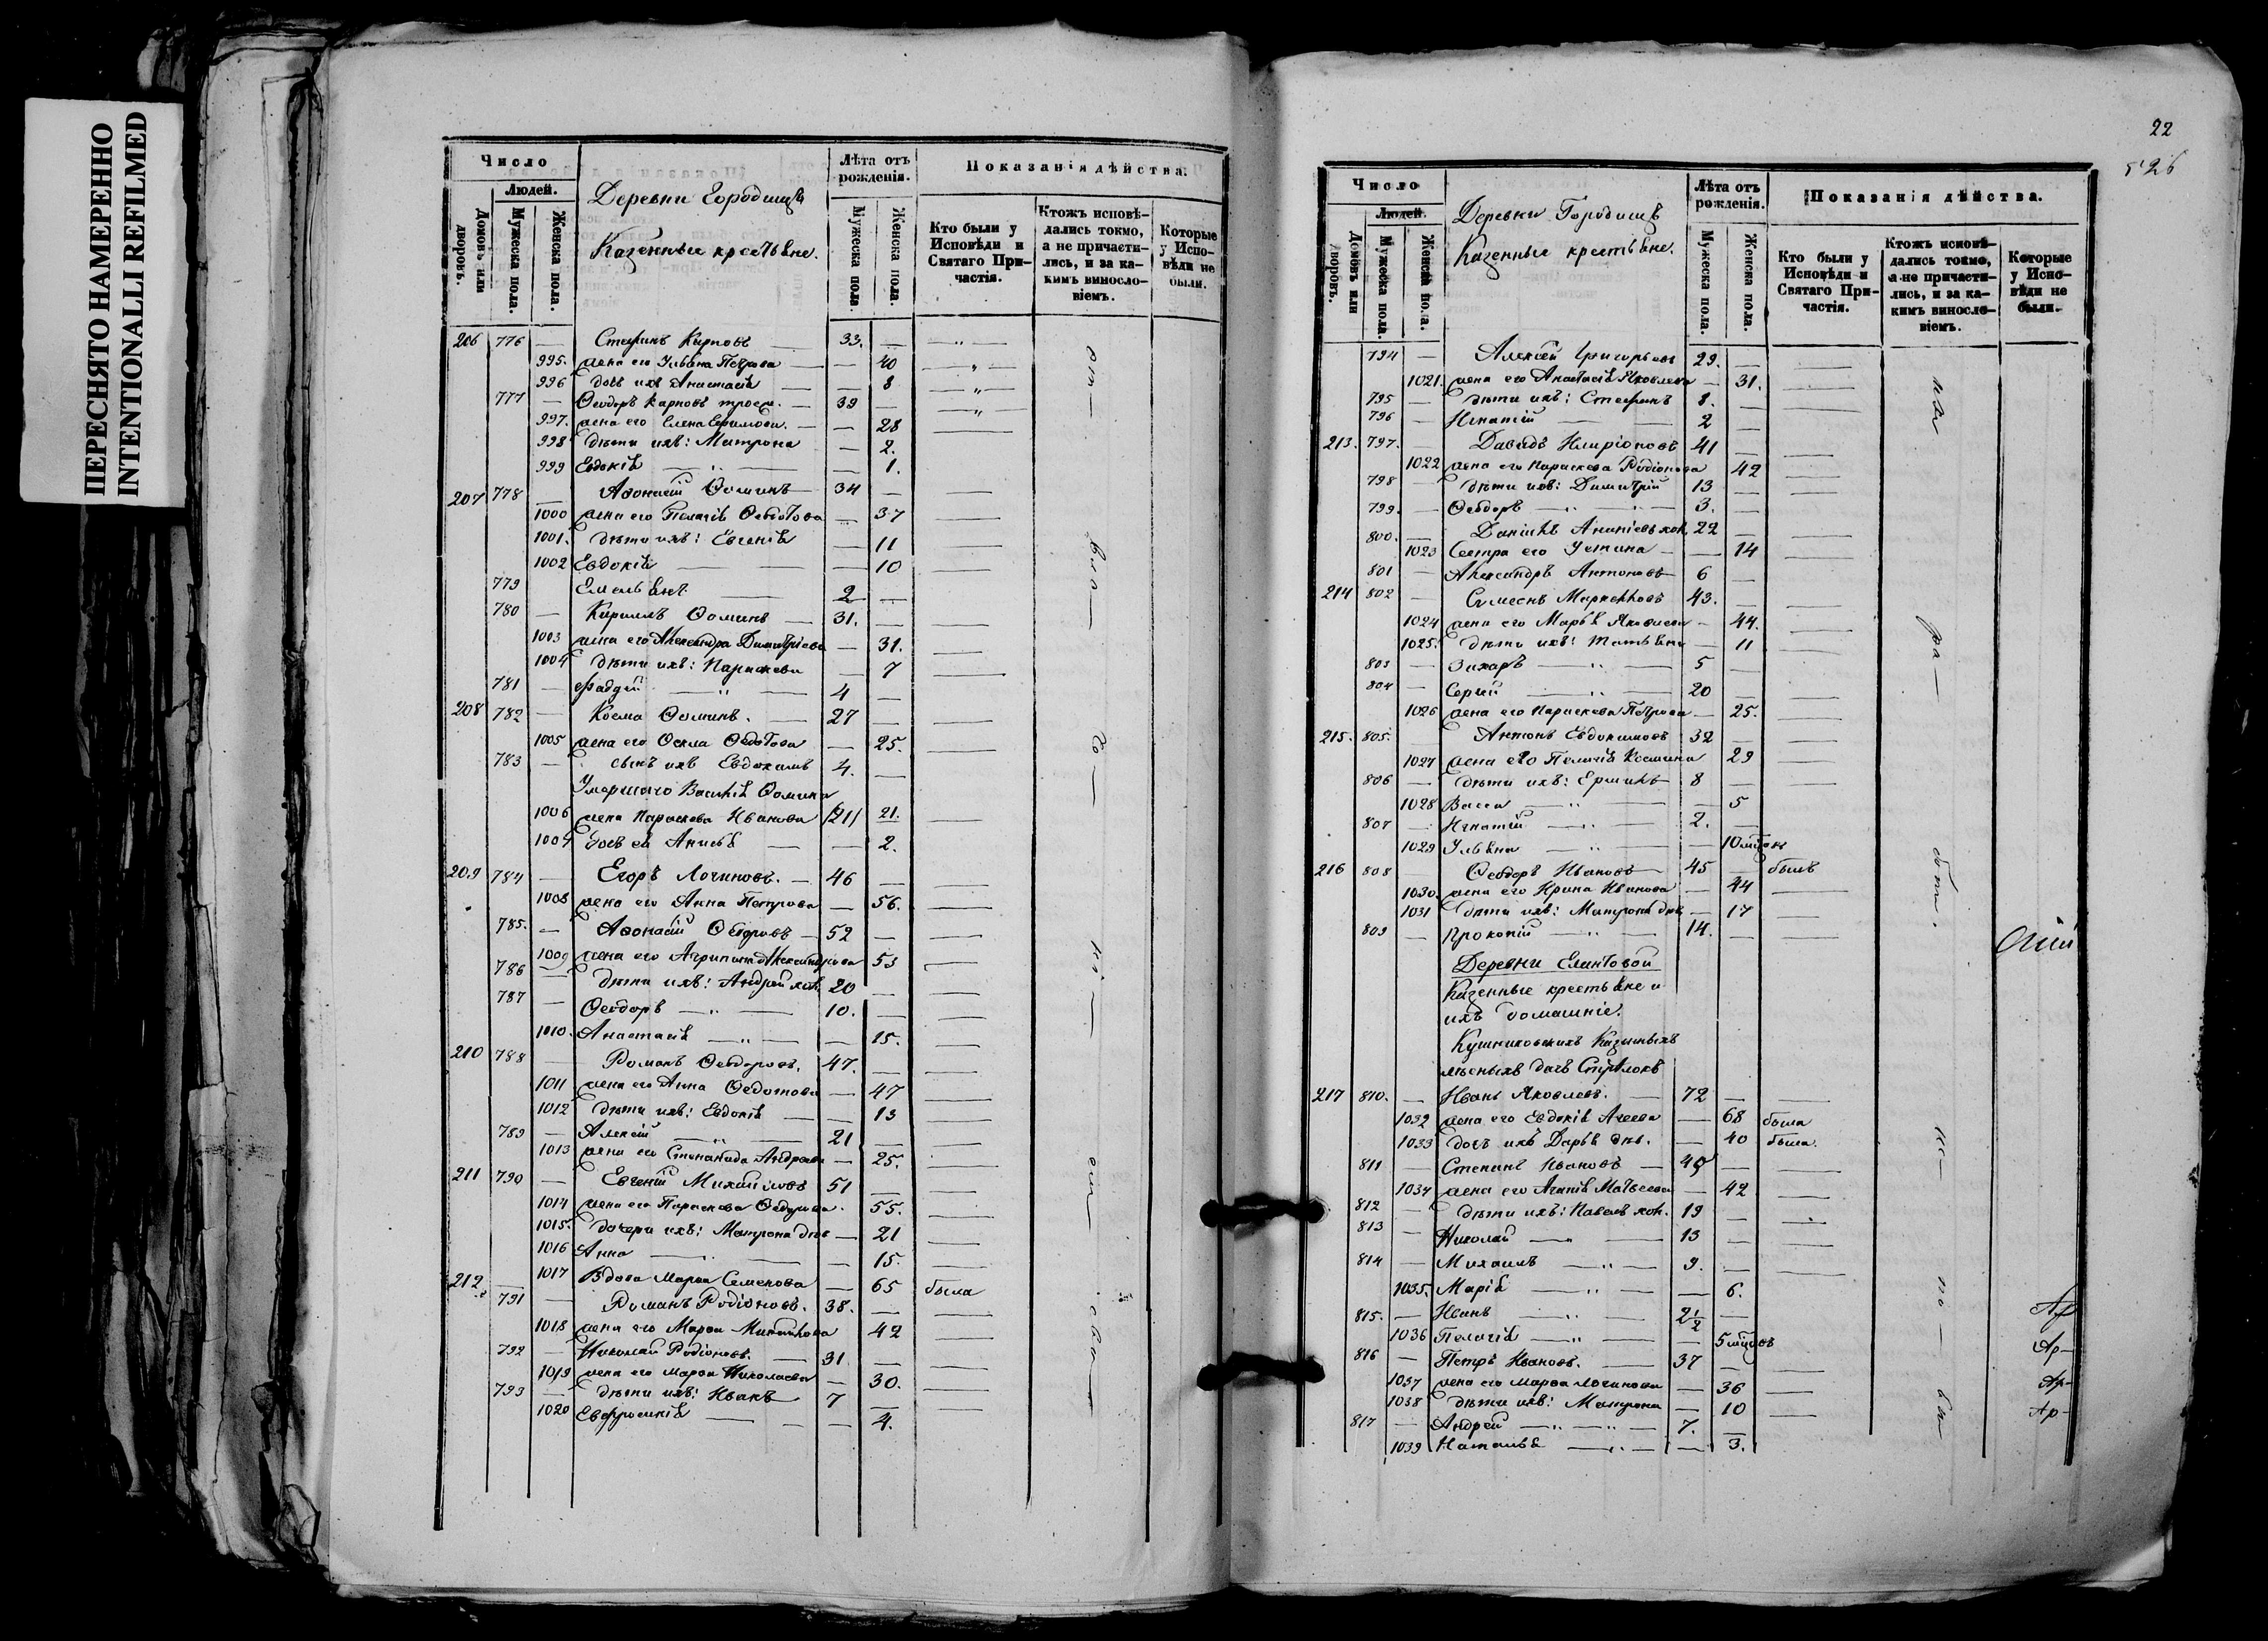 ПЕРЕСНЯТО НАМЕРЕННО
INTENTIONALLI REFILMED
Число
Людей.
Домовъ или дворовъ.
Мужеска пола.
Женска пола.
Деревни Городищъ
Казенные крестьяне.
Лѣта отъ рожденія.
Мужеска пола.
Женска пола.
Показанія дѣйства.
Кто были у Исповѣди и Святаго Причастія.
Ктожъ исповѣдались токмо, а не причастились, и за какимъ винословіемъ.
Которые у Исповѣди не были.
206 776 — Стефанъ Карповъ — 33. —
995. жена его Ульяна Петрова — — 40
996 дочь ихъ Анастасія — — 8
777 — Ѳеодоръ Карповъ — 39 —
997. жена его Елена Ефимова. — — 28
998 дѣти ихъ: Матрона — 2.
999 Евдокія — — 1.
207 778 — Аѳонасій Ѳоминъ — 34 —
1000 жена его Пелагія Ѳедотова — 37
1001. дѣти ихъ: Евгенія — 11
1002 Евдокія — — 10
779 Емельянъ — 2 —
780 — Кириллъ Ѳоминъ — 31. —
1003 жена его Александра Димитріева — 31.
1004 дѣти ихъ: Параскева — 7
781 — Фаддей — 4 —
208 782 — Косма Ѳоминъ. — 27 —
1005 жена его Ѳекла Ѳедотова — 25.
783 — сынъ ихъ Евдокимъ 4. —
Умершаго Василія Ѳомина
1006 жена Параскева Иванова /21/ 21.
1007 дочь ея Анисья — — 2.
209 784 — Егоръ Логиновъ. — 46 —
1008 жена его Анна Петрова — 56.
785. — Аѳонасій Ѳедоровъ — 52 —
1009 жена его Агрипина Александрова 53
786 — дѣти ихъ: Андрей хол. 20 —
787 — Ѳеодоръ — 10. —
1010. Анастасія — — 15.
210 788 — Романъ Ѳеодоровъ. 47. —
1011 жена его Анна Ѳедотова — 47
1012 дѣти ихъ: Евдокія — — 13
789 — Алексій — 21 —
1013 жена его Степанида Андреева — 25.
211 790 — Евгеній Михайловъ 51 —
1014 жена его Параскева Ѳедорова. 55.
1015. дочери ихъ: Матрона двц — 21
1016 Анна — — 15.
212 — 1017 Вдова Марѳа Семенова — 65 была
791 — Романъ Родіоновъ. 38. —
1018 жена его Марѳа Михайлова 42
792 — Николай Родіоновъ. — 31 —
1019 жена его Марѳа Николаева — 30.
793 — дѣти ихъ: Иванъ 7 —
1020 Евфросинія — — 4.
22
526
Число
Людей.
Домовъ или дворовъ.
Мужеска пола.
Женска пола.
Деревни Городищъ
Казенные крестьяне.
Лѣта отъ рожденія.
Мужеска пола.
Женска пола.
Показанія дѣйства.
Кто были у Исповѣди и Святаго Причастія.
Ктожъ исповѣдались токмо, а не причастились, и за какимъ винословіемъ.
Которые у Исповѣди не были.
794 — Алексѣй Григорьевъ 29. —
1021. жена его Анастасія Яковлева — 31.
795 — дѣти ихъ: Стефанъ 8. —
796 — Игнатій — 2 —
213. 797. — Давидъ Иларіоновъ 41 —
1022 жена его Параскева Родіонова 42
798 — дѣти ихъ: Димитрій 13 —
799. — Ѳеодоръ — 3. —
800. — Даніилъ Ананіевъ хол. 22 —
1023 Сестра его Устина — — 14
801 — Александръ Антоновъ 6 —
214 802 — Симеонъ Маркелловъ 43. —
1024 жена его Марья Яковлева — 44.
1025. дѣти ихъ: Татьяна — 11
803 — Захаръ — 5 —
804 — Сергій — 20 —
1026 жена его Параскева Петрова — 25.
215. 805. Антонъ Евдокимовъ 32 —
1027 жена его Пелагія Космина 29
806 — дѣти ихъ: Ермилъ 8 —
1028 Васса — — 5
807 — Игнатій — 2. —
1029 Ульяна — — 10 мѣсяц
216 808 — Ѳеодоръ Ивановъ 45 — былъ
1030. жена его Ирина Иванова — 44
1031 дѣти ихъ: Матрона двц — 17
809 — Прокопій — 14. —
Деревни
Казенные крестьяне и
ихъ домашніе.
Казенныхъ
лѣсныхъ дачъ Стрѣлокъ
217 810. — Иванъ Яковлевъ. — 72 —
1032 жена его Евдокія Агеева — 68 была
1033 дочь ихъ Дарья двц. — 40 была.
811 — Степанъ Ивановъ — 45 —
1034 жена его Агапія Матвеева — 42
812 — дѣти ихъ: Павелъ хол. 19 —
813 — Николай — 13 —
814 — Михаилъ — 9. —
1035. Марія — — 6.
815. — Иванъ — 2½ — Ар
1036 Пелагія — — 5 мѣсяцъ Ар—
816 — Петръ Ивановъ. — 37 —
1037 жена его Марѳа Логинова — 36 Ар—
1038 дѣти ихъ: Матрона — 10 Ар—
817 — Андрей — 7. —
1039 Наталья — — 3.